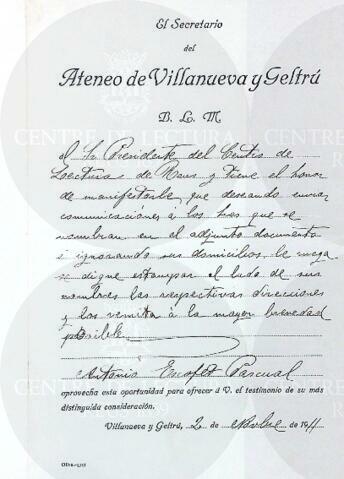 El Secretario
del
Ateneo de Villanueva y Geltrú
B. L. M.
al Sr Presidente del Centro de
Lecturas de Reus y tiene el honor
de manifestarle, que deseando enviar
comunicaciones á los Sres que se
nombran en el adjunto documento
é ignorando sus domicilios, le ruega
se digne estampar al lado de sus
nombres las respectivas direcciones
y los remita á la mayor brevedad
posible.
Antonio Escofet Pascual
aprovecha esta oportunidad para ofrecer á V. el testimonio de su más
distinguida consideración.
Villanueva y Geltrú, 2 de de 1911
CENTRE DE LECTURA